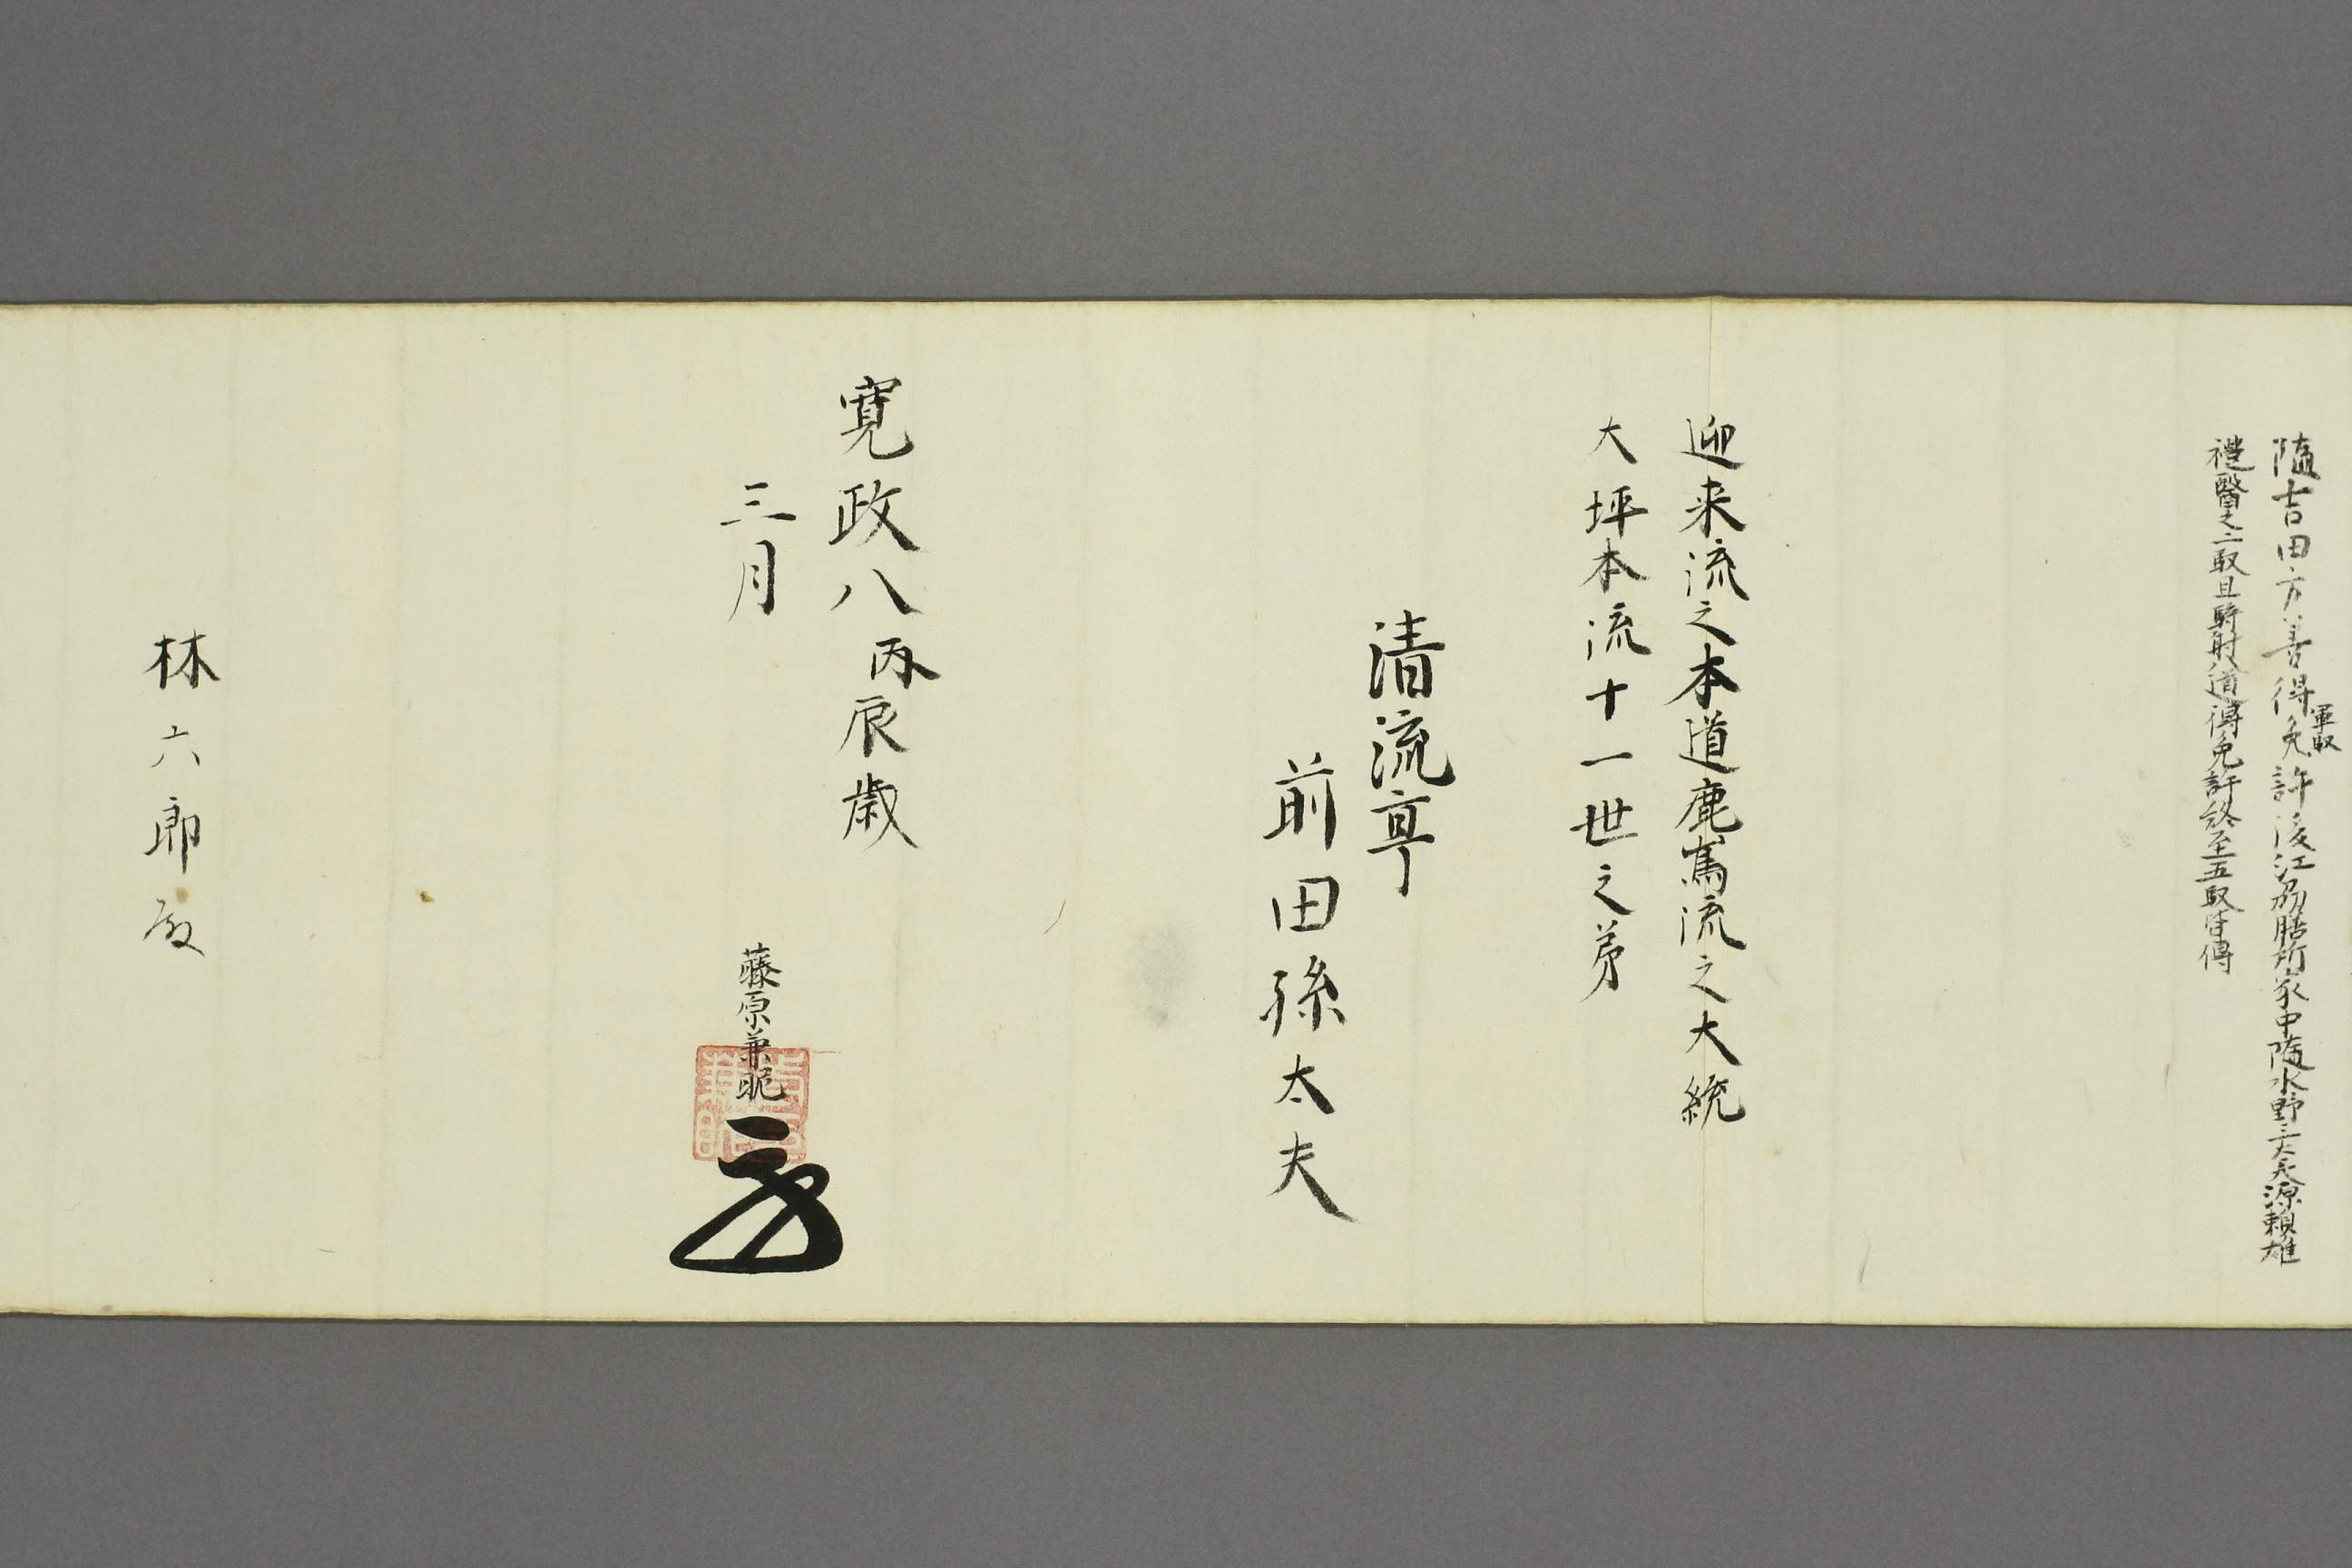 軍馭
隨吉田方善得免許後江州膳所家中隨水野三太夫源頼雄
禮醫之二馭且騎射道得免許終至五馭皆傳
迎来流之本道鹿嶌流之大統
大坪本流十一世之弟
清流亭
前田孫太夫
寛政八丙辰歳
三月
藤原兼昵
林六郎殿